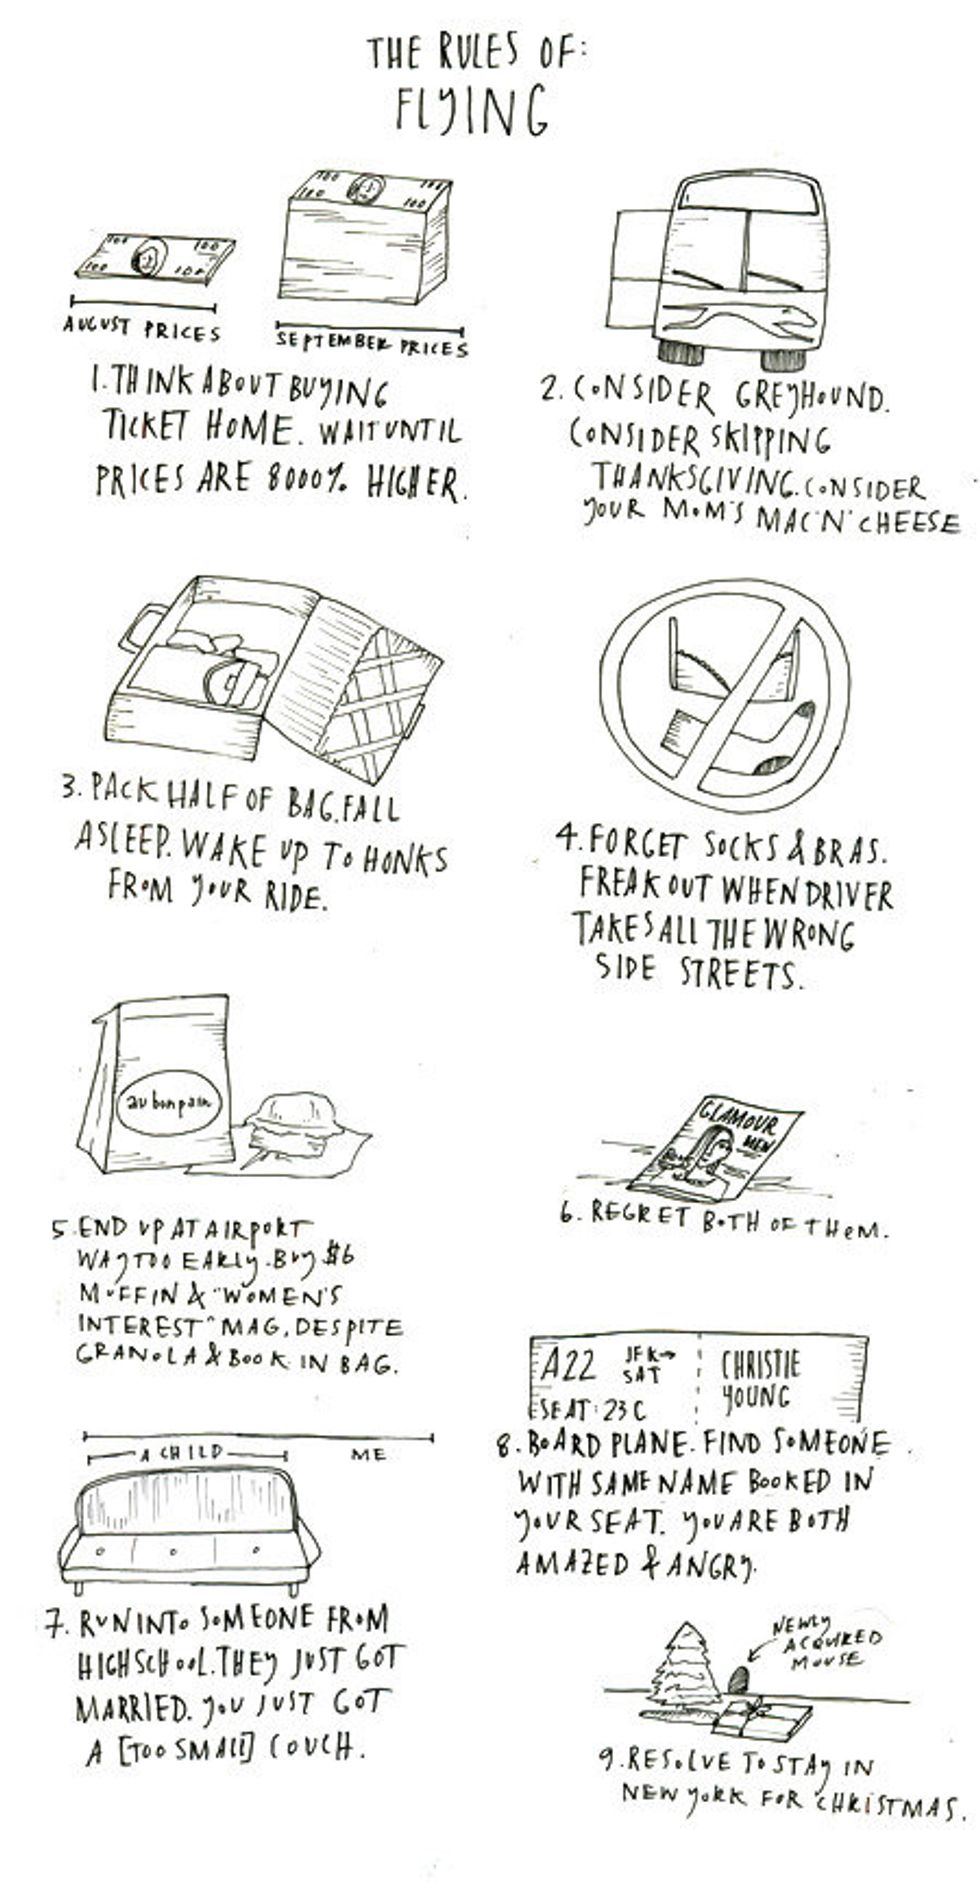 THE RULES OF:
FLYING
100 100
100 100
AUGUST PRICES
100 100
100 100
SEPTEMBER PRICES
1. THINK ABOUT BUYING
TICKET HOME. WAIT UNTIL
PRICES ARE 8000% HIGHER.
2. CONSIDER GREYHOUND.
CONSIDER SKIPPING
THANKSGIVING. CONSIDER
YOUR MOM'S MAC'N'CHEESE
3. PACK HALF OF BAG. FALL
ASLEEP. WAKE UP TO HONKS
FROM YOUR RIDE.
4. FORGET SOCKS & BRAS.
FREAK OUT WHEN DRIVER
TAKES ALL THE WRONG
SIDE STREETS.
au bon pain
5. END UP AT AIRPORT
WAY TOO EARLY. BUY $6
MUFFIN & "WOMEN'S
INTEREST" MAG, DESPITE
GRANOLA & BOOK IN BAG.
GLAMOUR
MEN
6. REGRET BOTH OF THEM.
A CHILD
ME
7. RUN INTO SOMEONE FROM
HIGH SCHOOL. THEY JUST GOT
MARRIED. YOU JUST GOT
A [TOO SMALL] COUCH.
A22 JFK→
SAT
SEAT: 23C
CHRISTIE
YOUNG
8. BOARD PLANE. FIND SOMEONE
WITH SAME NAME BOOKED IN
YOUR SEAT. YOU ARE BOTH
AMAZED & ANGRY.
NEWLY
ACQUIRED
MOUSE
9. RESOLVE TO STAY IN
NEW YORK FOR CHRISTMAS.